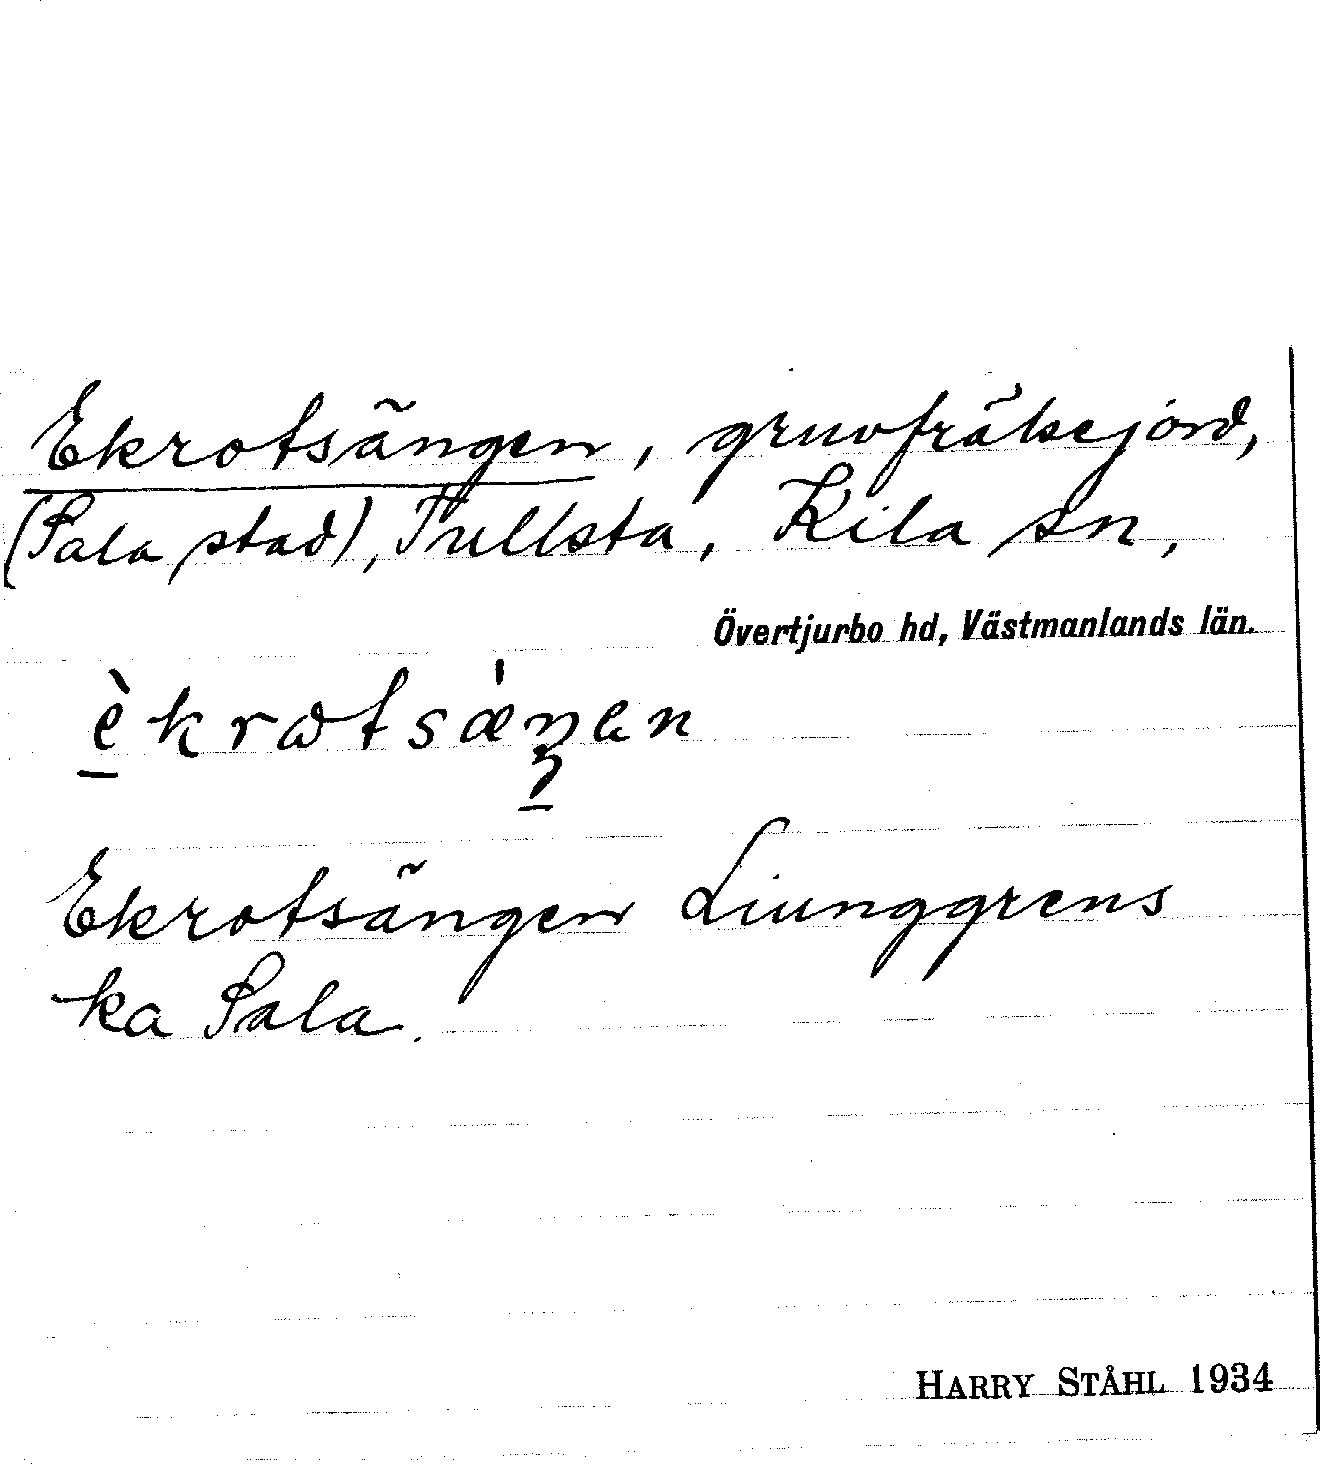 Ekrotsängen, gruvfrälsejord,
(Sala stad), Tullsta, Kila sn,
Övertjurbo hd, Västmanlands län.
Ekrotsängen Liunggrens
ka Sala.
HARRY STÅHL 1934